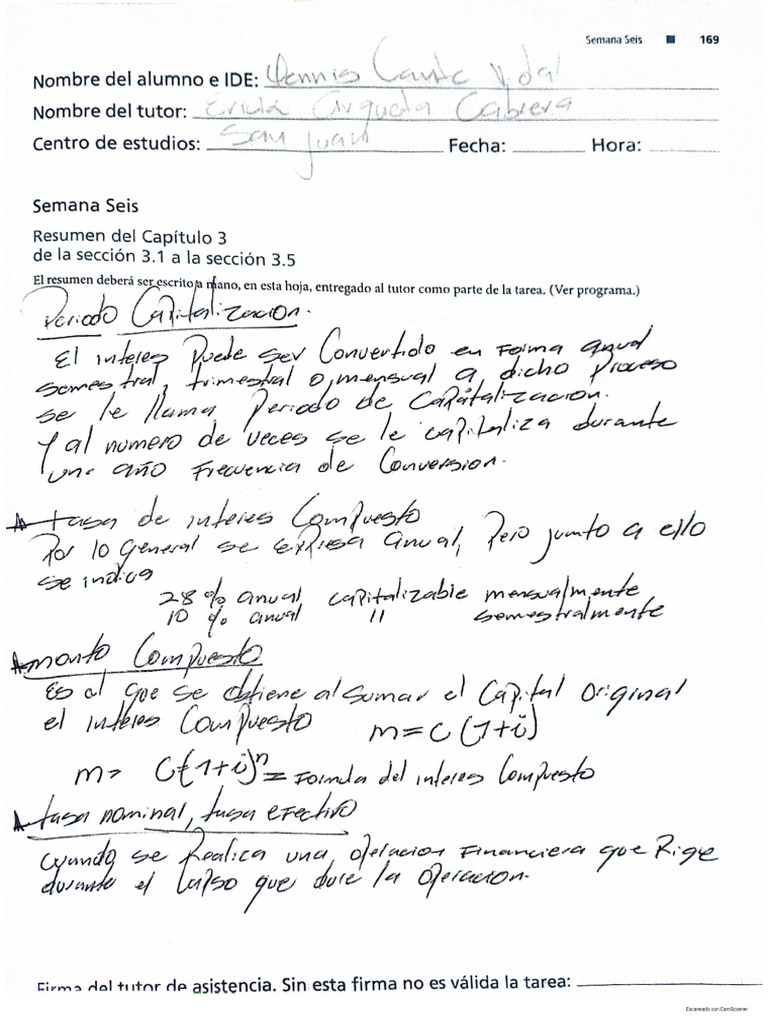 Semana Seis ■ 169
Nombre del alumno e IDE: Dennis Cante Vidal
Nombre del tutor: Cabrera
Centro de estudios: San Juan Fecha: Hora:
Semana Seis
Resumen del Capítulo 3
de la sección 3.1 a la sección 3.5
El resumen deberá ser escrito a mano, en esta hoja, entregado al tutor como parte de la tarea. (Ver programa.)
Periodo Capitalizacion.
El interes Puede ser Convertido en Forma anual
semestral, trimestral o, mensual a dicho proceso
se le llama Periodo de Capitalizacion.
Y al numero de veces se le capitaliza durante
un año Frecuencia de Conversion.
tasa de interes Compuesto
Por lo general se expresa anual, Pero junto a ello
se indica
28 % anual capitalizable mensualmente
10 % anual " semestralmente
monto Compuesto
Es al que se obtiene al sumar el Capital Original
el interes Compuesto m = c (1+i)
m = C(1+i)ⁿ = Formula del interes Compuesto
tasa nominal, tasa efectivo
Cuando se Realica una operacion Financiera que Rige
durante el lapso que dure la operacion.
Firma del tutor de asistencia. Sin esta firma no es válida la tarea:
Escaneado con CamScanner